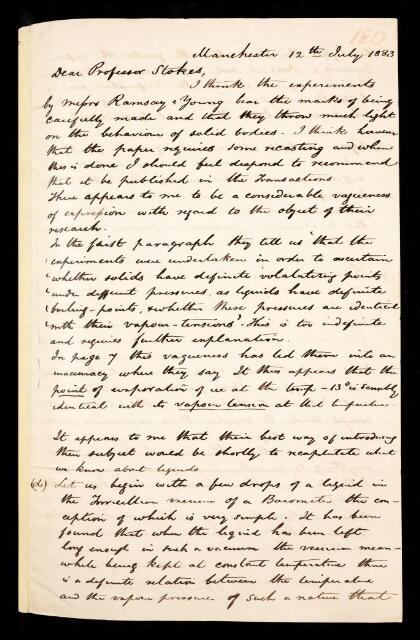 180
Manchester 12th July 1883
Dear Professor Stokes,
I think the experiments
by Messrs Ramsay & Young bear the marks of being
carefully made and that they throw much light
on the behaviour of solid bodies. I think however
that the paper requires some recasting and when
this is done I should feel disposed to recommend
that it be published in the Transactions.
There appears to me to be a considerable vagueness
of expression with regard to the object of their
research.
In the first paragraph they tell us "that the
experiments were undertaken in order to ascertain
"whether solids have definite volatilizing points
"under different pressures, as liquids have definite
"boiling-points, & whether these pressures are identical
"with their vapour-tensions". This is too indefinite
and requires further explanation.
In page 7 this vagueness has led them into an
inaccuracy where they say It thus appears that the
point of evaporation of ice at the temp -13° is sensibly
identical with its vapour tension at that temperature
It appears to me that their best way of introducing
their subject would be shortly to recapitulate what
we know about liquids
Let us begin with a few drops of a liquid in
the Torricellian vacuum of a Barometer the con-
ception of which is very simple. It has been
found that when the liquid has been left
long enough in such a vacuum the vacuum mean-
while being kept at constant temperature there
is a definite relation between the temperature
and the vapour pressure of such a nature that